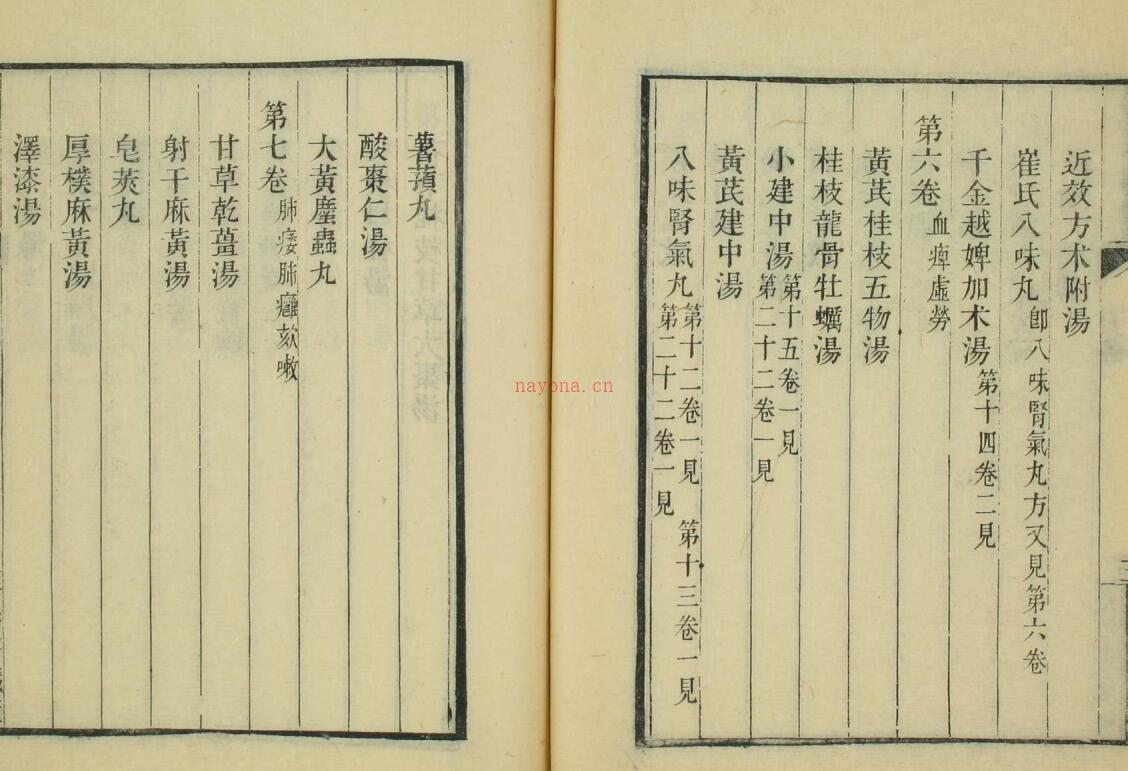 近效方术附湯
崔氏八味丸 卽八味腎氣丸方又見第六卷
千金越婢加术湯 第十四卷二見
第六卷 血痺虛勞
黃芪桂枝五物湯
桂枝龍骨牡蠣湯
小建中湯 第十五卷一見 第二十二卷一見
黃芪建中湯
八味腎氣丸 第十二卷一見 第十三卷一見 第二十二卷一見
薯蕷丸
酸棗仁湯
大黃䗪蟲丸
第七卷 肺痿肺癰欬嗽
甘草乾薑湯
射干麻黃湯
皂莢丸
厚樸麻黃湯
澤漆湯
nayona.cn